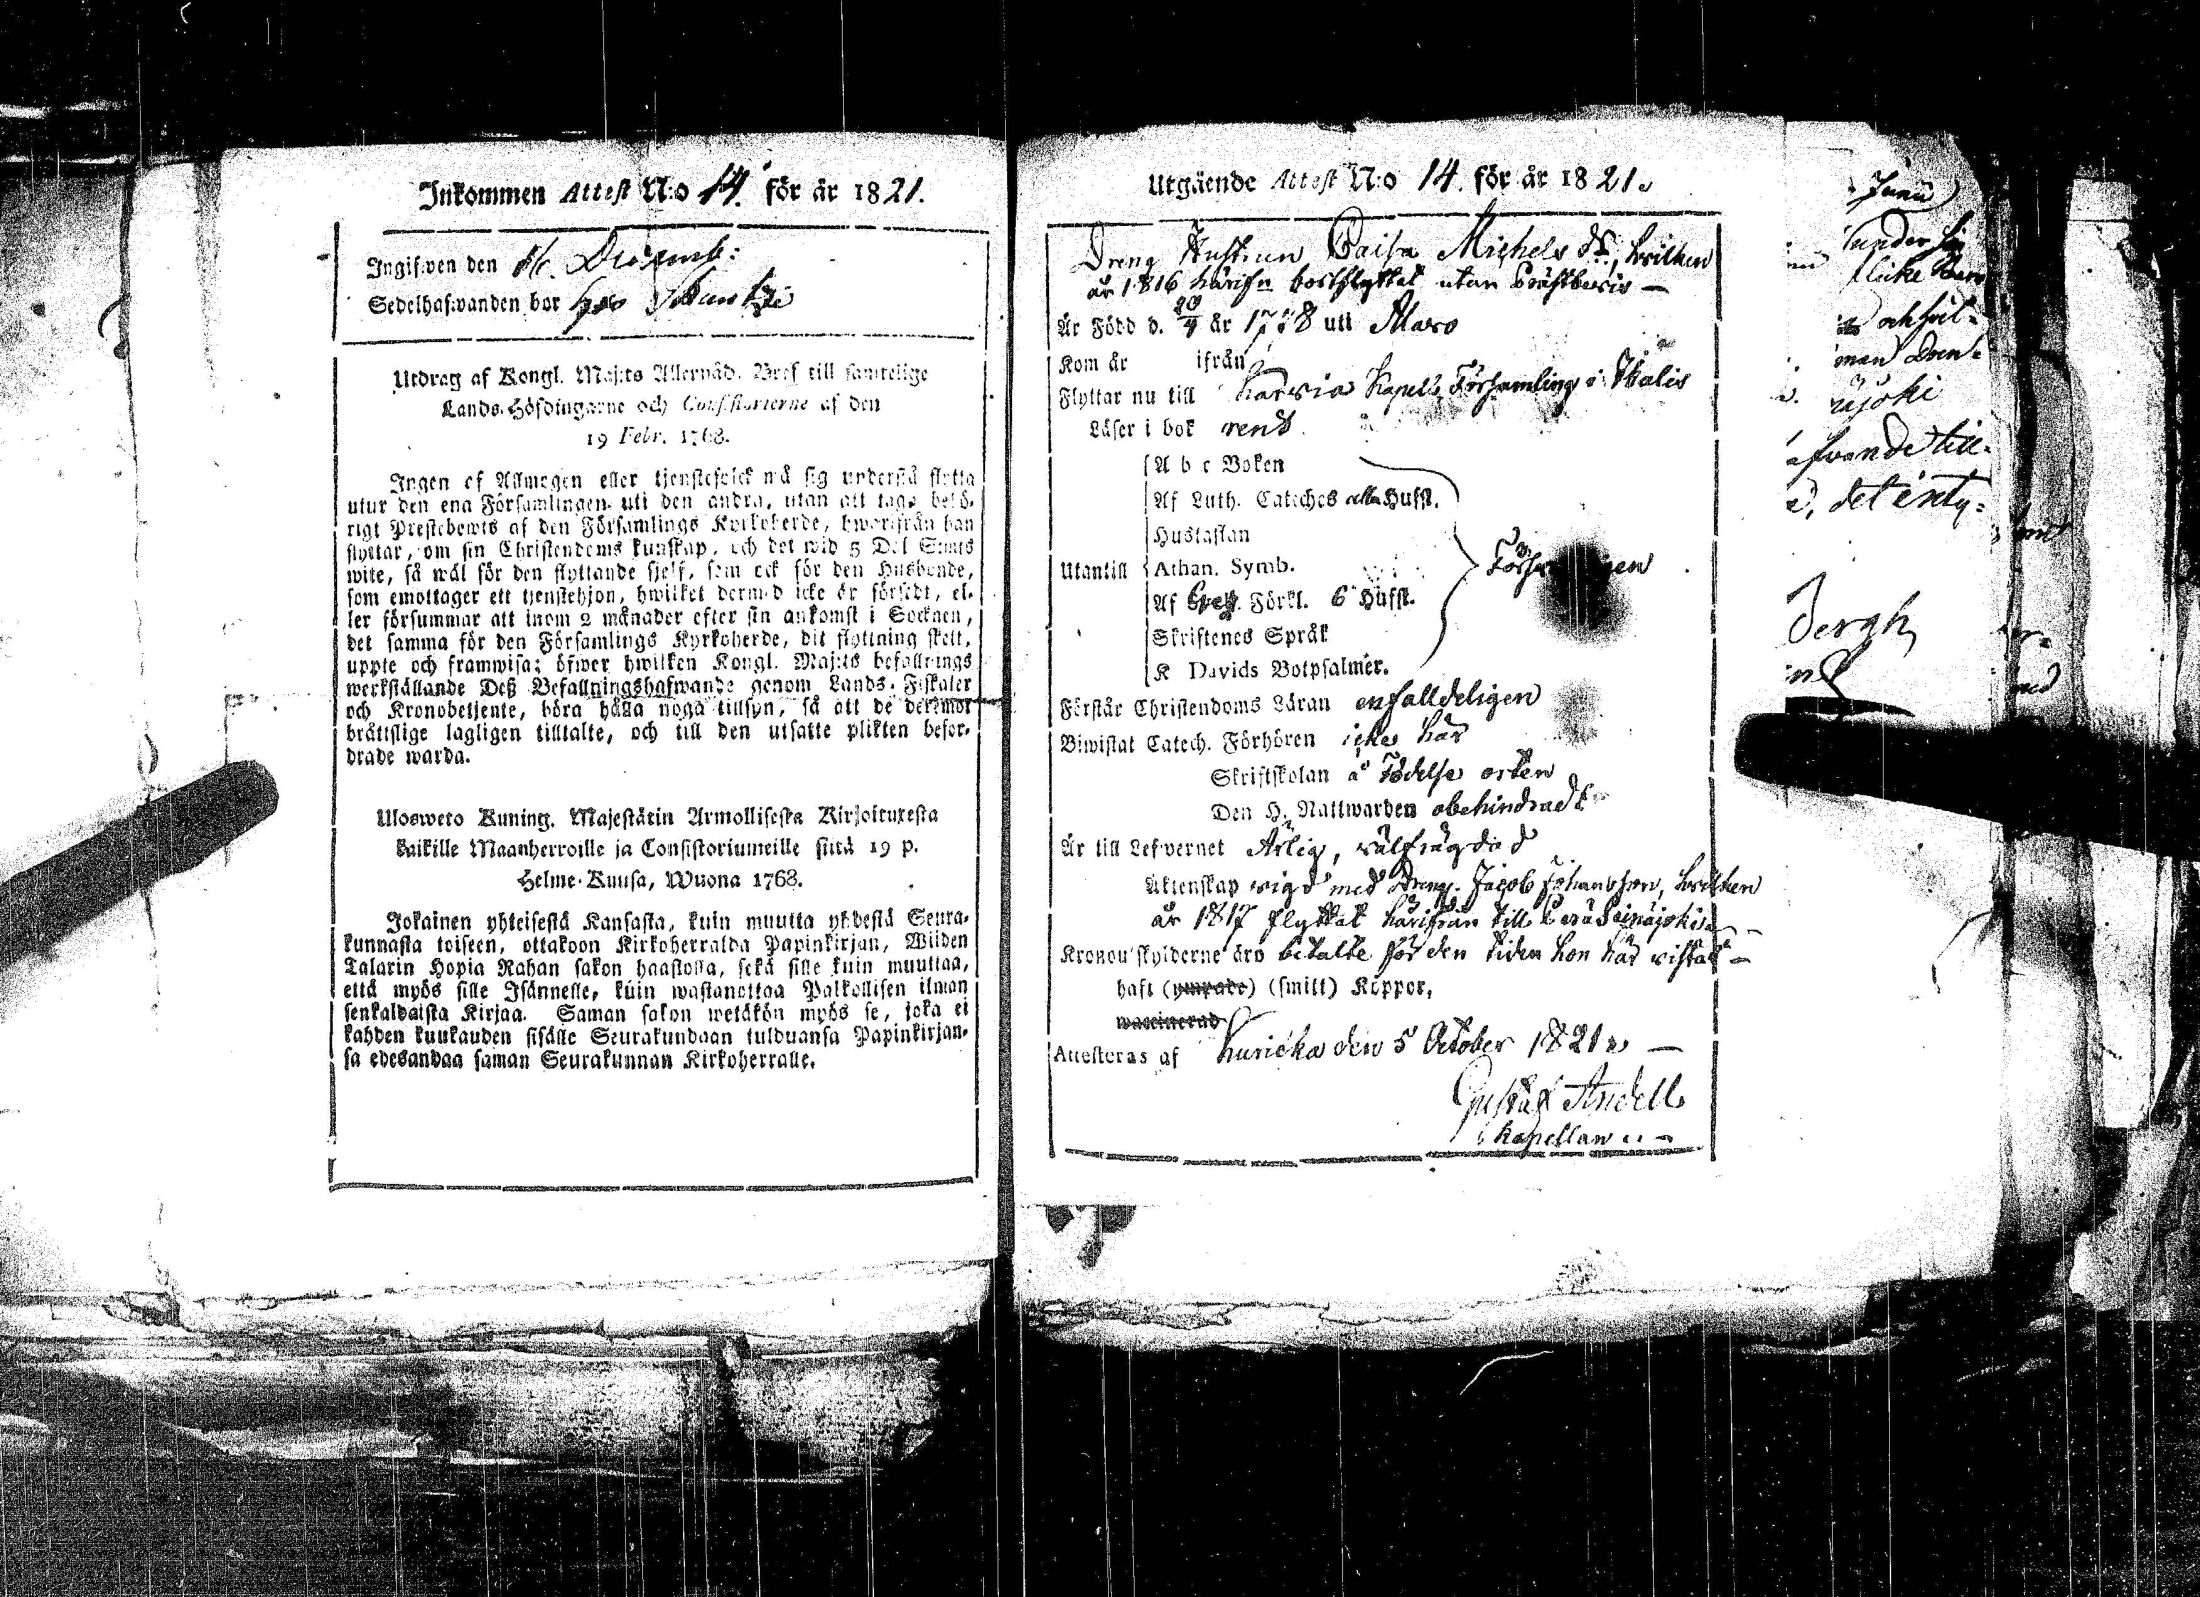 Inkommen Attest N:o 14. för år 1821.
Ingifwen den 16. Decemb:
Sedelhafwanden bor hos
Utdrag af Kongl. Maj:ts Allernåd. Bref till samtelige
Lands-Höfdingarne och Consistorierne af den
19 Febr. 1768.
Ingen af Allmogen eller tjenstefolck må sig understå flytta
utur den ena Församlingen uti den andra, utan att taga behö-
rigt Prestebewis af den Församlings Kyrkoherde, hwarifrån han
flyttar, om sin Christendoms kunskap, och det wid 5 Dal Smts
wite, så wäl för den flyttande sjelf, som ock för den Husbonde,
som emottager ett tjenstehjon, hwilket dermed icke är försedt, el-
ler försummar att inom 2 månader efter sin ankomst i Socknen,
det samma för den Församlings Kyrkoherde, dit flyttning skett,
uppte och framwisa; öfwer hwilken Kongl. Maj:ts befallnings
werkställande Deß Befallningshafwande genom Lands-Fiskaler
och Kronobetjente, böra hålla noga tillsyn, så att de deremot
bråttslige lagligen tilltalte, och till den utsatte plikten befor-
drade warda.
Ulosweto Kuning. Majestätin Armollisesta Kirjoituxesta
kaikille Maanherroille ja Consistoriumeille siitä 19 p.
Helme-Kuusa, Wuona 1768.
Jokainen yhteisestä Kansasta, kuin muutta yhdestä Seura-
kunnasta toiseen, ottakoon Kirkoherralda Papinkirjan, Wiiden
Talarin Hopia Rahan sakon haastolla, sekä sille kuin muuttaa,
että myös sille Isännelle, kuin wastanottaa Palkollisen ilman
senkaldaista Kirjaa. Saman sakon wetäkön myös se, joka ei
kahden kuukauden sisälle Seurakundaan tulduansa Papinkirjan-
sa edesandaa saman Seurakunnan Kirkoherralle.
Utgående Attest N:o 14. för år 1821.
Dreng Hustrun Caisa Michels dr, hvilken
år 1816 härifn bortflyttat utan Prästbevis —
Är Född d. år 17 8 uti Alavo
Kom år ifrån
Flyttar nu till Karvia Kapells Församling i Ikalis
Läser i bok rent
A b c Boken
Af Luth. Cateches alla Hufst.
Hustaflan
Utantill Athan. Symb.
Af Förkl. 6 Hufst.
Skriftenes Språk
K Davids Botpsalmer.
Förstår Christendoms Läran enfalldeligen
Biwistat Catech. Förhören icke här
Skriftskolan å Födelse orten
Den H. Nattwarden obehindradt
Är till Lefvernet Ärlig, välfrägdad
Äktenskap vigd med Dreng. Jacob Johansson, hvilken
år 1817 flyttat härifrån till Peräseinäjoki
Kronoutskylderne äro betalte för den tiden hon här vistats —
haft (ympade) (smitt) Koppor,
waccinerad
Attesteras af Kuricka den 5 October 1821. —
Gustaf Andell
kapellan
Junii
ochfül-
äjoki
afvande till-
det inty-
Bergh